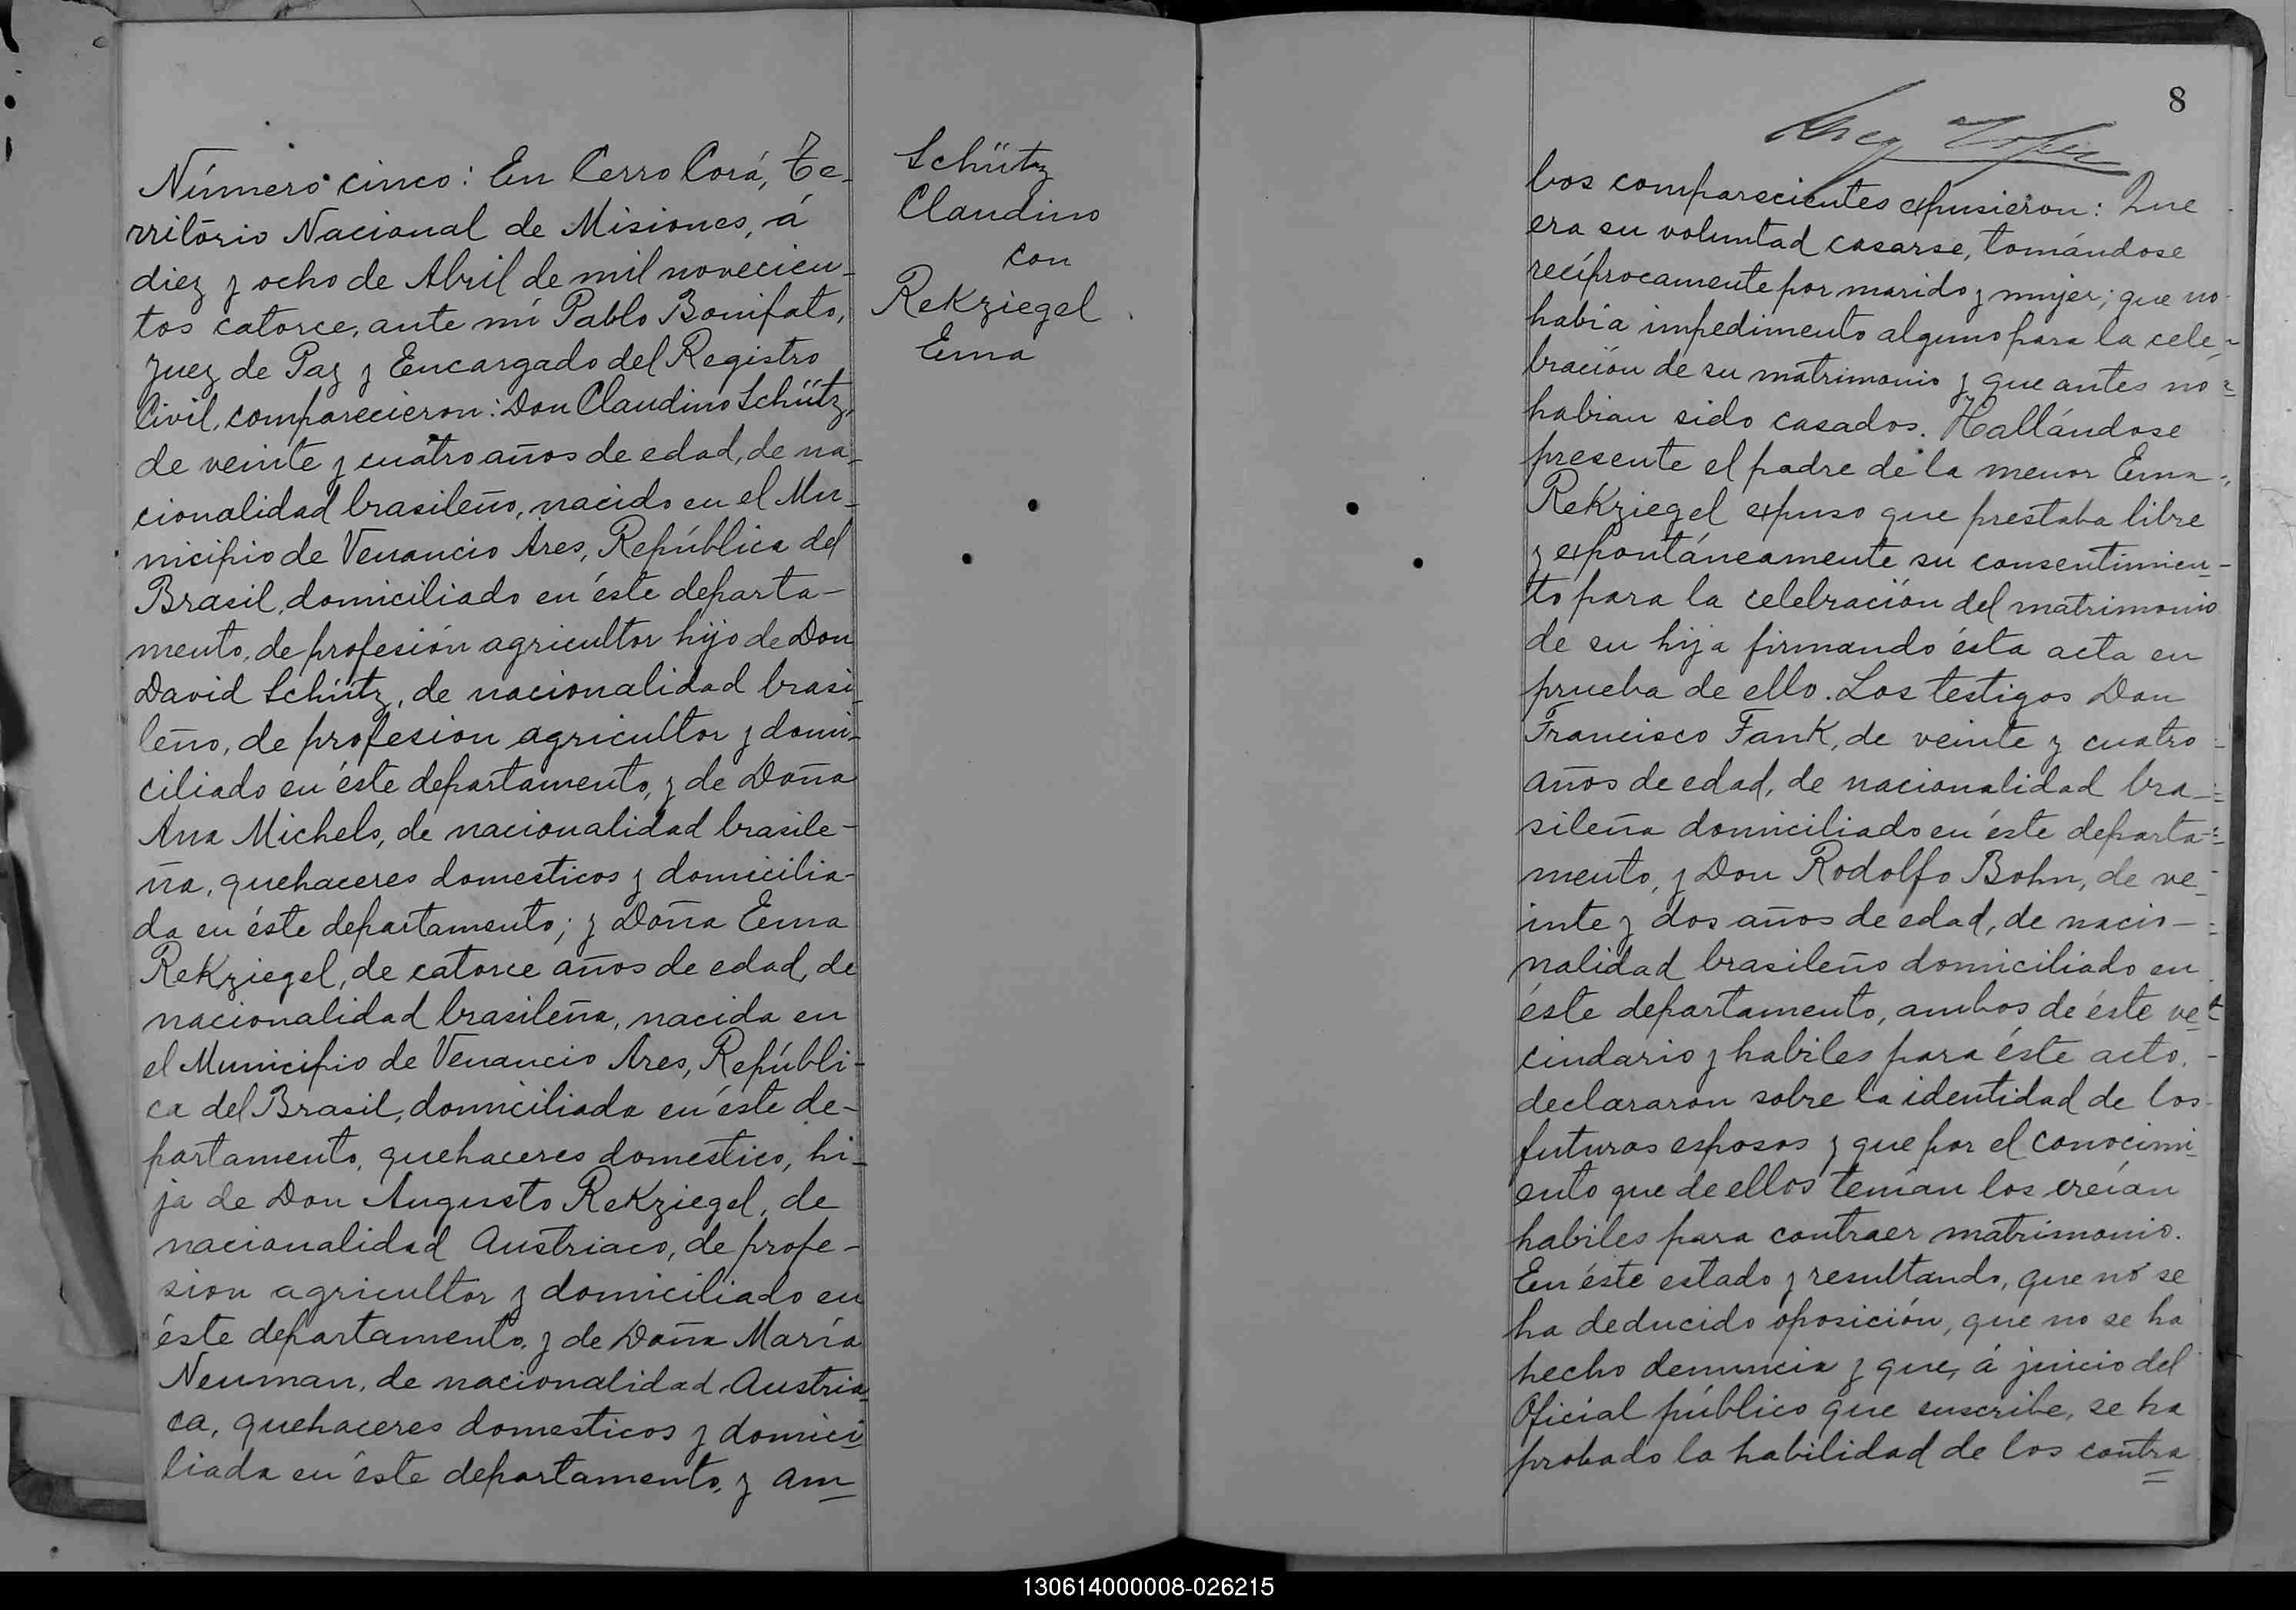 Número cinco: En Cerro Corá, Te-
rritório Nacional de Misiones, á
diez y ocho de Abril de mil novecien-
tos catorce, ante mi Pablo Bonifato,
Juez de Paz y Encargado del Registro
Civil, comparecieron: Don Claudino Schütz,
de veinte y cuatro años de edad, de na-
cionalidad brasileño, nacido en el Mu-
nicipio de Venancio Ares, República del
Brasil, domiciliado en éste departa-
mento, de profesión agricultor hijo de Don
David Schütz, de nacionalidad brasi-
leño, de profesion agricultor y domi-
ciliado en éste departamento, y de Doña
Ana Michels, de nacionalidad brasile-
ña, quehaceres domesticos y domicilia-
da en éste departamento; y Doña Ema
Rekziegel, de catorce años de edad, de
nacionalidad brasileña, nacida en
el Municipio de Venancio Ares, Repúbli-
ca del Brasil, domiciliada en éste de-
partamento, quehaceres domestico, hi-
ja de Don Augusto Rekziegel, de
nacionalidad Austriaco, de profe-
sion agricultor y domiciliado en
éste departamento, y de Doña María
Neuman, de nacionalidad Austria-
ca, quehaceres domesticos y domici-
liada en éste departamento, y am-
Schütz
Claudino
con
Rekziegel
Ema
8
bos comparecientes expusieron: Que
era su voluntad casarse, tomándose
recíprocamente por marido y mujer; que no
habia impedimento alguno para la cele-
bración de su matrimonio y que antes no
habian sido casados. Hallándose
presente el padre de la menor Ema
Rekziegel expuso que prestaba libre
y expontáneamente su consentimien-
to para la celebración del matrimonio
de su hija firmando ésta acta en
prueba de ello. Los testigos Don
Francisco Fank, de veinte y cuatro
años de edad, de nacionalidad bra-
sileña domiciliado en éste departa-
mento, y Don Rodolfo Bohn, de ve-
inte y dos años de edad, de nacio-
nalidad brasileño domiciliado en
éste departamento, ambos de éste ve-
cindario y habiles para éste acto,
declararon sobre la identidad de los
futuros esposos y que por el conocimi-
ento que de ellos tenian los creían
habiles para contraer matrimonio.
En éste estado y resultando, que no se
ha deducido oposición, que no se ha
hecho denuncia y que, á juicio del
Oficial público que suscribe, se ha
probado la habilidad de los contra
130614000008-026215